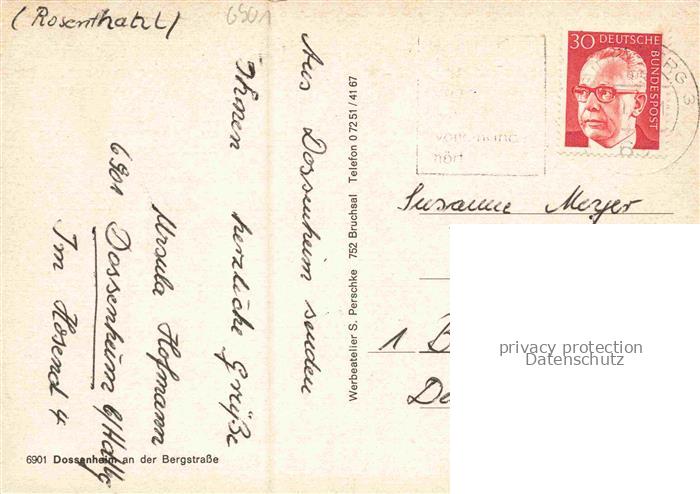 (Rosenthahl)
6901
Aus Dossenheim senden
Ihnen herzliche Grüße
Ursula Hofmann
6901 Dossenheim b/Hdbg
Im Hösend 4
6901 Dossenheim an der Bergstraße
Werbeatelier S. Perschke 752 Bruchsal Telefon 0 72 51 / 41 67
30 DEUTSCHE
BUNDESPOST
hört
Susanne Meyer
1 B
De
privacy protection
Datenschutz